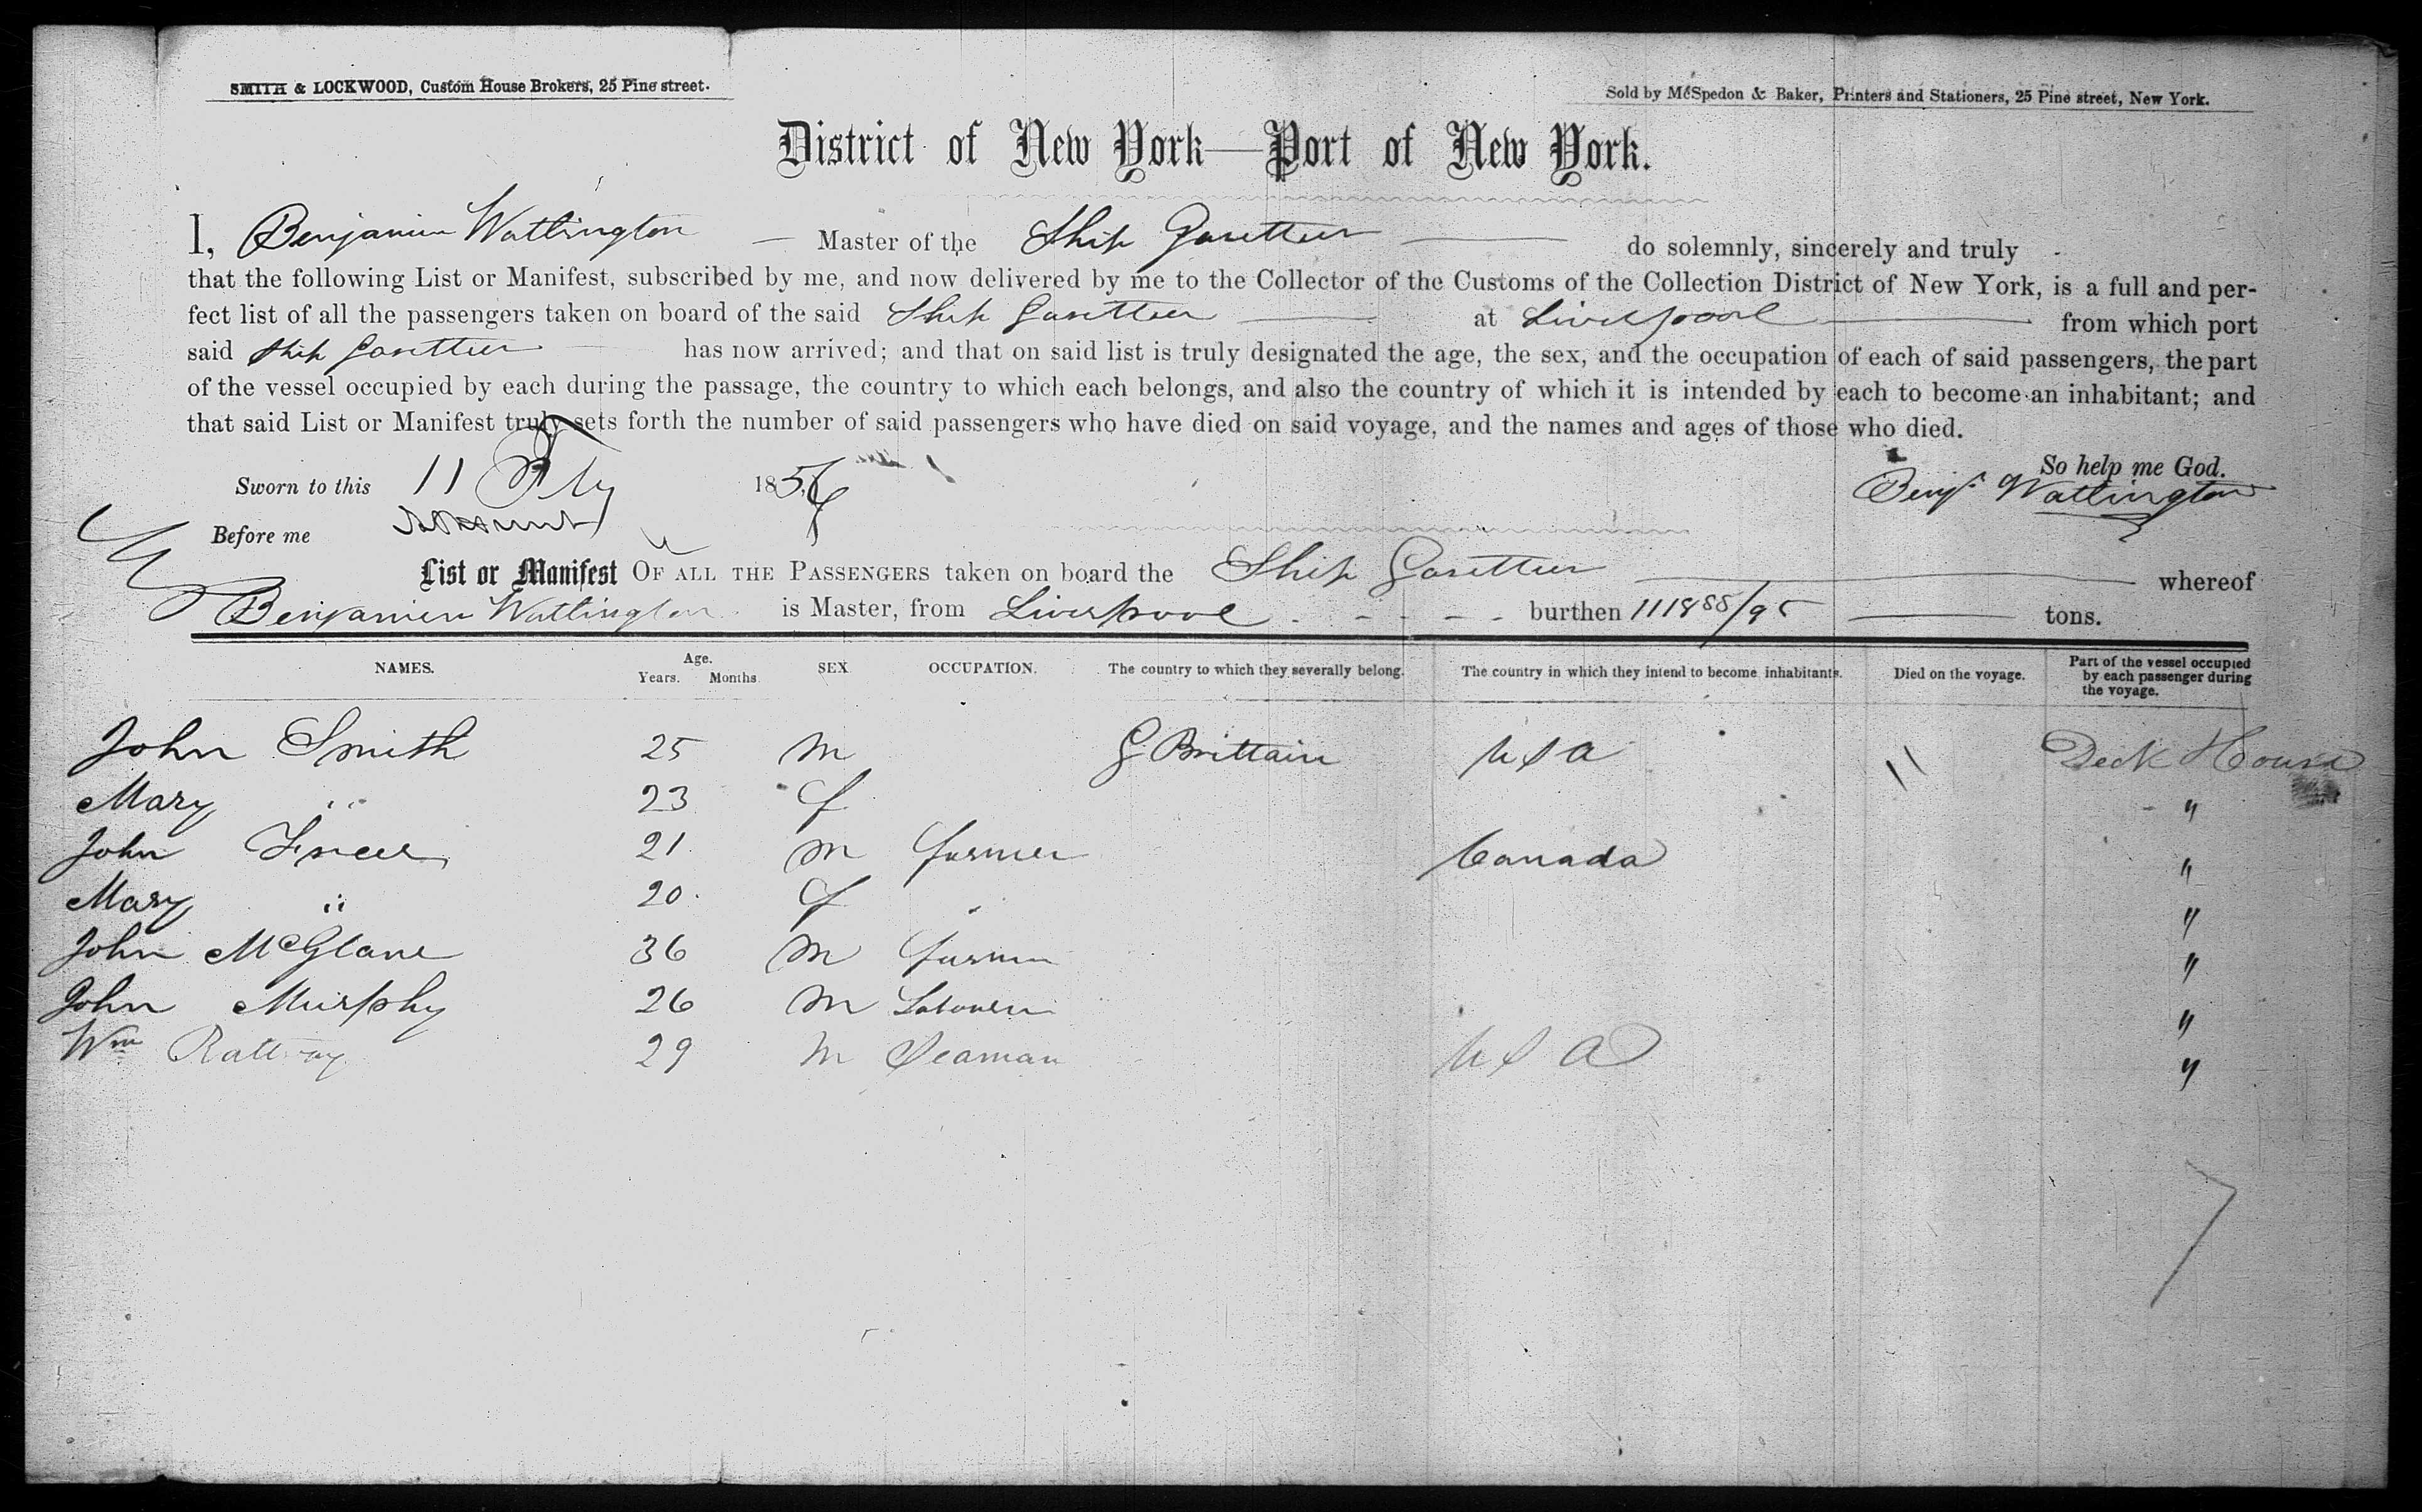 SMITH & LOCKWOOD, Custom House Brokers, 25 Pine street.
Sold by McSpedon & Baker, Printers and Stationers, 25 Pine street, New York.
District of New York—Port of New York.
I, Benjamin Watlington — Master of the Ship Gazetteer do solemnly, sincerely and truly
that the following List or Manifest, subscribed by me, and now delivered by me to the Collector of the Customs of the Collection District of New York, is a full and per-
fect list of all the passengers taken on board of the said Ship Gazetteer at Liverpool from which port
said Ship Gazetteer has now arrived; and that on said list is truly designated the age, the sex, and the occupation of each of said passengers, the part
of the vessel occupied by each during the passage, the country to which each belongs, and also the country of which it is intended by each to become an inhabitant; and
that said List or Manifest truly sets forth the number of said passengers who have died on said voyage, and the names and ages of those who died.
So help me God.
Sworn to this 11 1856 Benjn Watlington
Before me
List or Manifest OF ALL THE PASSENGERS taken on board the Ship Gazetteer whereof
Benjamin Watlington is Master, from Liverpool burthen 1118 88/95 tons.
NAMES. Age. Years. Months. SEX OCCUPATION. The country to which they severally belong. The country in which they intend to become inhabitants. Died on the voyage. Part of the vessel occupied by each passenger during the voyage.
John Smith 25 m G Brittain U S A Deck House
Mary " 23 f "
John 21 m farmer Canada "
Mary " 20 f "
John McGlane 36 m farmer "
John Murphy 26 m Labourer "
Wm Rattray 29 m Seaman U S A "
7